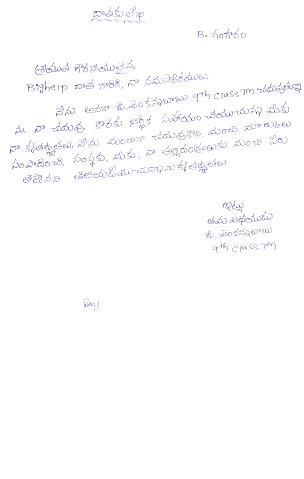 దాతకు లేఖ
B. గంగారం
శ్రీయుత గౌరవనీయులైన,
Bighelp దాత గారికి, నా నమస్కారములు.
నేను అనగా జి. వెంకన్నబాబు 9th class TM చదువుతున్నా
ను. నా చదువు కొరకు ఆర్థిక సహాయం చేయుచున్న మీకు
నా కృతజ్ఞతలు. నేను మంచిగా చదువుకొని, మంచి మార్కులు
సంపాదించి, సంస్థకు, మీకు, నా తల్లిదండ్రులకు మంచి పేరు
తెస్తానని తెలియజేయుచున్నాను కృతజ్ఞతలు
ఇట్లు
తమ విధేయుడు
జి. వెంకన్నబాబు
9th class TM